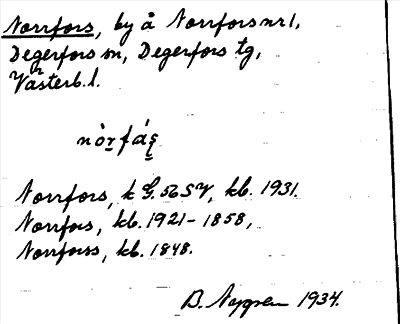 Norrfors, by å Norrfors nr 1,
Degerfors sn, Degerfors tg,
Västerb. l.
nòr̲fás̲
Norrfors, k G. 56 SV, kb. 1931.
Norrfors, kb. 1921-1858,
Norrforss, kb. 1848.
B. 1934.